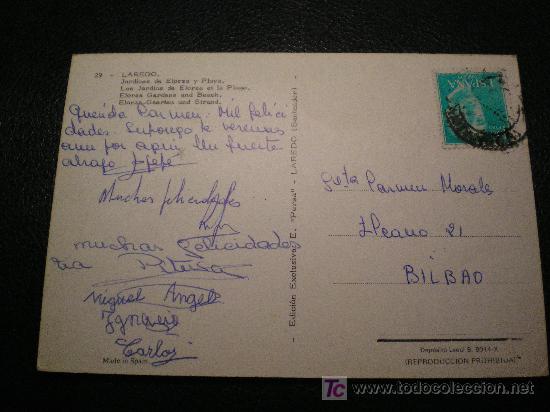 29 - LAREDO.
Jardines de Elorza y Playa.
Les Jardins de Elorza et la Plage.
Elorza Gardens and Beach.
Elorza-Gaerten und Strand.
Querida Carmen: Mil felici
dades. Supongo te veremos
aun por aqui. Un fuerte
abrazo Pepe
Muchas felicidades
muchas felicidades
tia Pituca
Miguel Angel
Ignacio
Carlos
Made in Spain
Edición Exclusiva E. "Persa" - LAREDO (Santander)
ESPAÑA
Srta Carmen Morales
21
BILBAO
Depósito Legal B.
(REPRODUCCION PROHIBIDA)
todocoleccion
www.todocoleccion.net